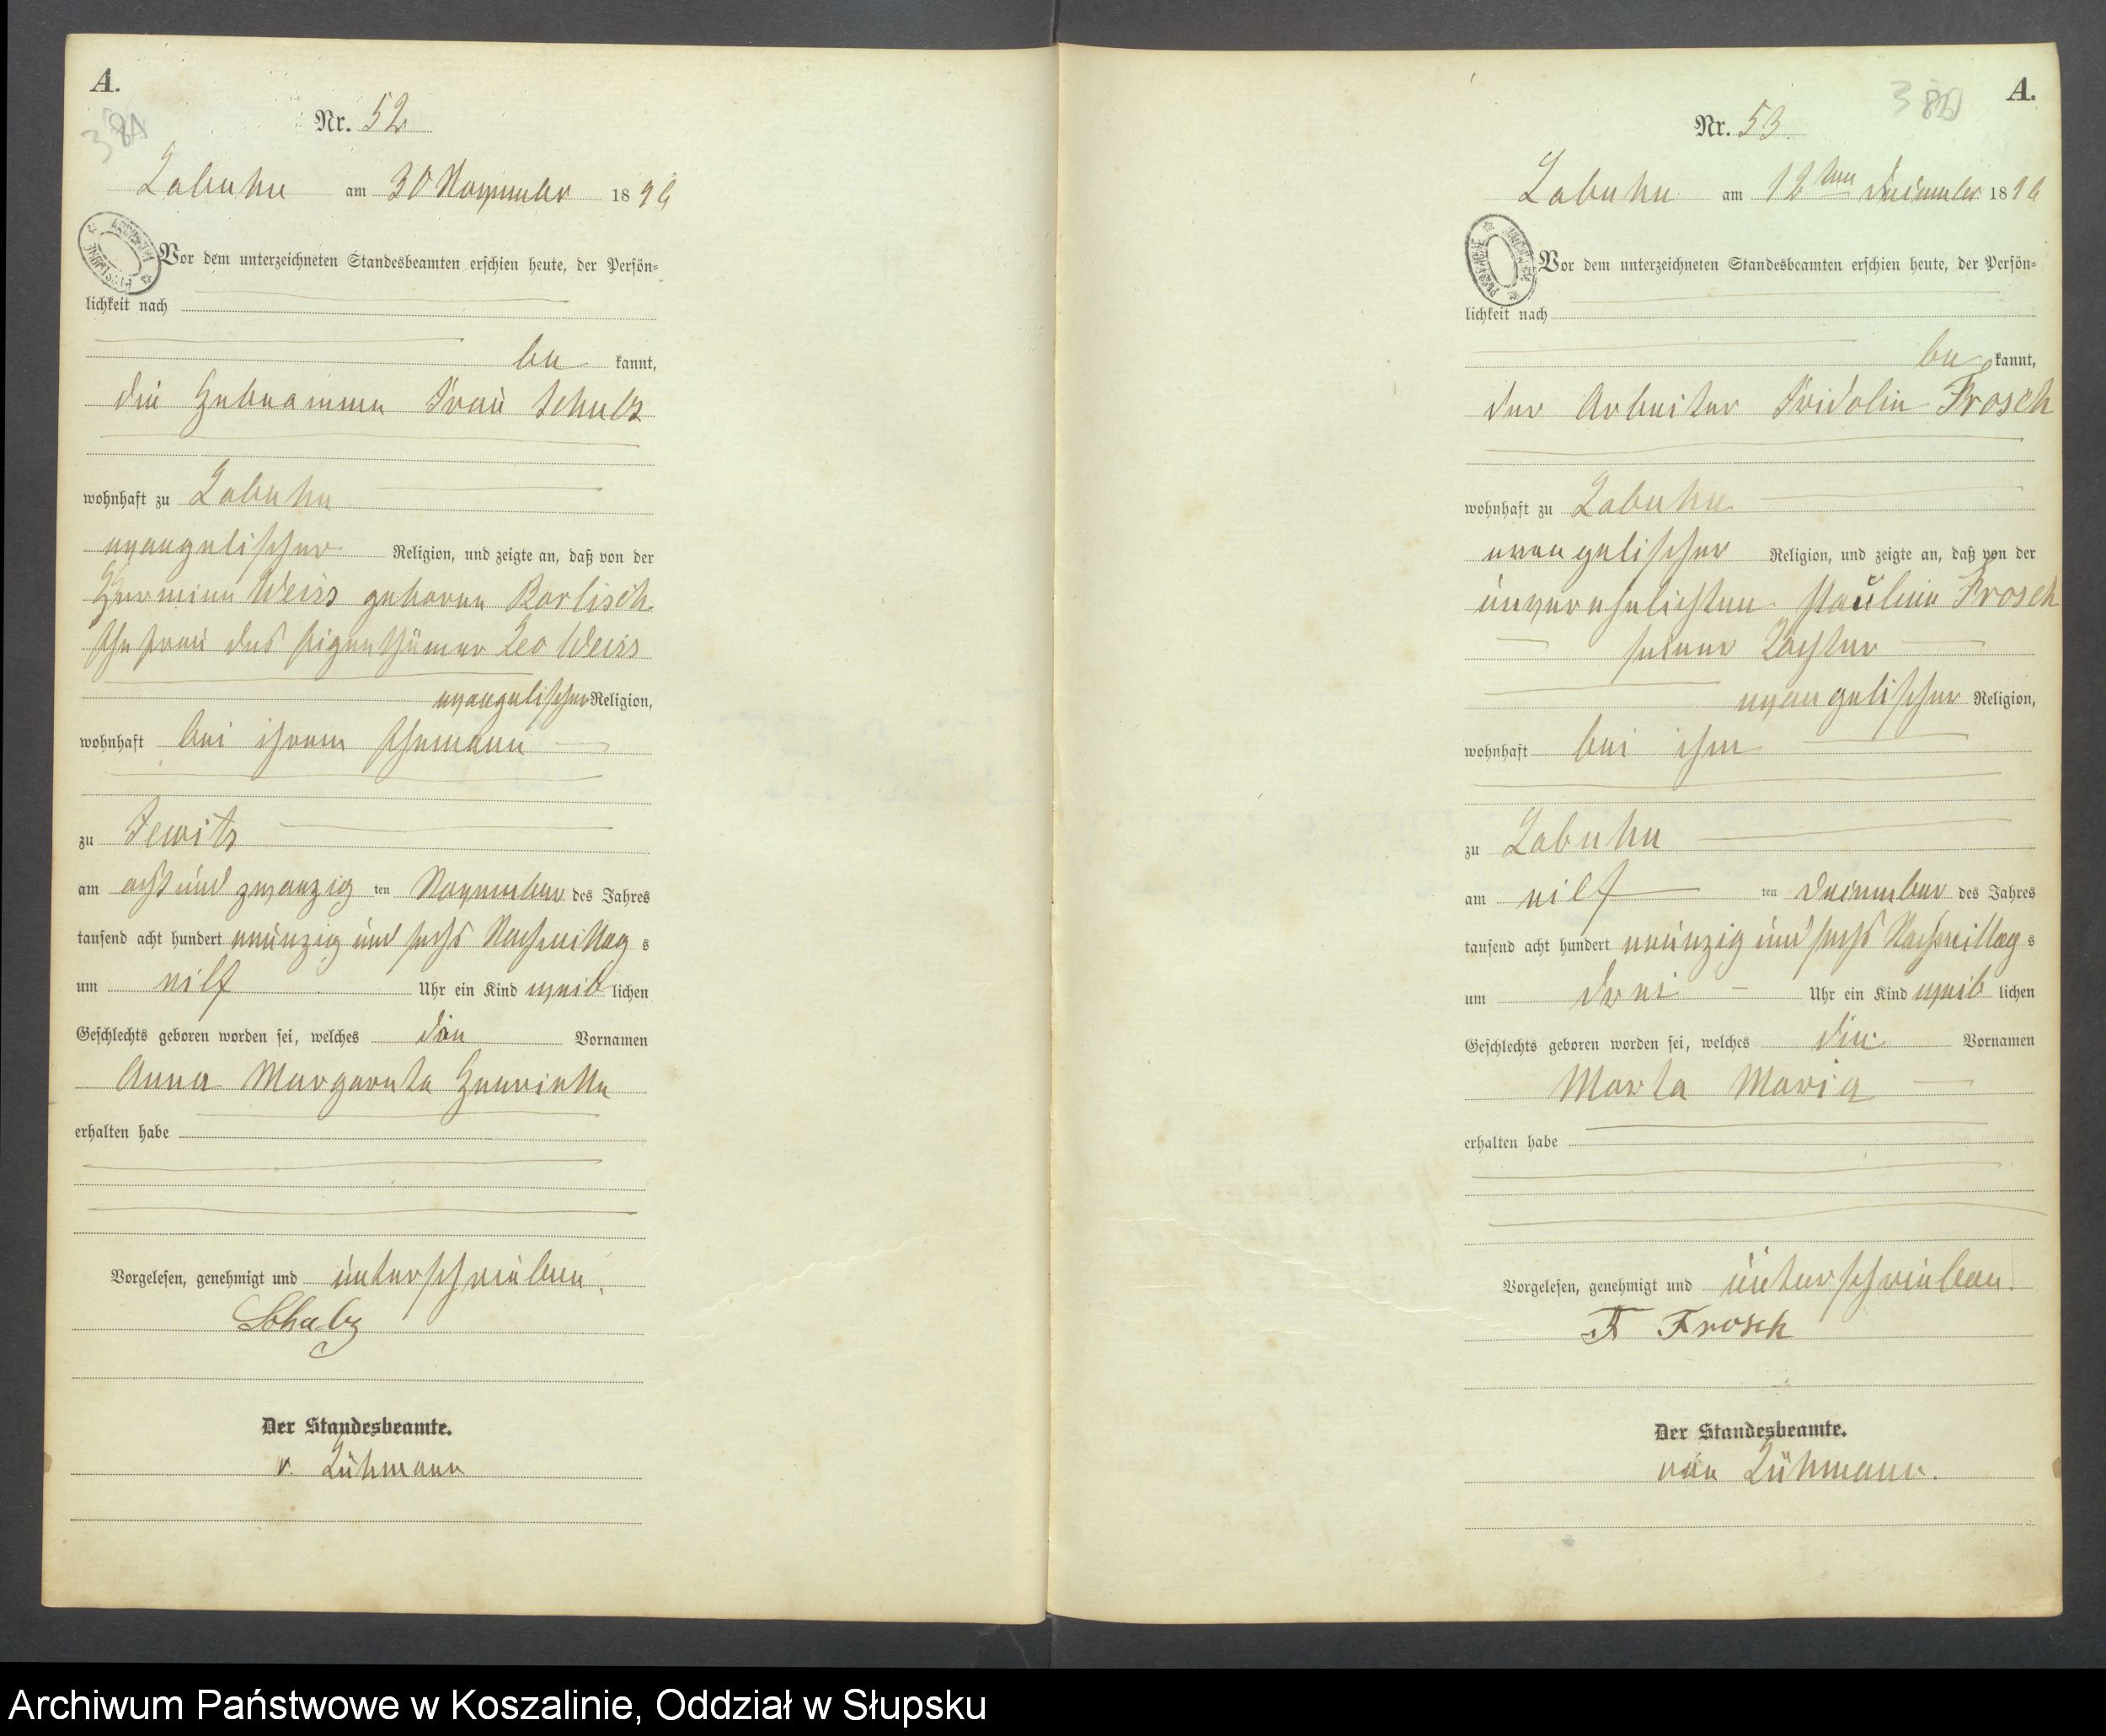 A.
38A
Nr. 52
Labuhn am 30 November 1896
Vor dem unterzeichneten Standesbeamten erschien heute, der Persön-
lichkeit nach
be kannt,
die Hebeamme Frau Schulz
wohnhaft zu Labuhn
evangelischer Religion, und zeigte an, daß von der
Hermine Weiss geborene Barlisch
Ehefrau des Eigenthümer Leo Weiss
evangelischer Religion,
wohnhaft bei ihrem Ehemann
zu Jewitz
am acht und zwanzig ten November des Jahres
tausend acht hundert neunzig und sechs Nachmittag s
um elf Uhr ein Kind weib lichen
Geschlechts geboren worden sei, welches die Vornamen
Anna Margareta Henriette
erhalten habe
Vorgelesen, genehmigt und unterschrieben.
Schulz
Der Standesbeamte.
v. Lühmann
A.
Nr. 53.
Labuhn am 12ten Dezember 1896
Vor dem unterzeichneten Standesbeamten erschien heute, der Persön-
lichkeit nach
be kannt,
der Arbeiter Fridolin Frosch
wohnhaft zu Labuhn
evangelischer Religion, und zeigte an, daß von der
unverehelichten Pauline Frosch
seiner Tochter
evangelischer Religion,
wohnhaft bei ihm
zu Labuhn
am elf ten Dezember des Jahres
tausend acht hundert neunzig und sechs Nachmittag s
um drei Uhr ein Kind weib lichen
Geschlechts geboren worden sei, welches die Vornamen
Marta Maria
erhalten habe
Vorgelesen, genehmigt und unterschrieben.
F Frosch
Der Standesbeamte.
von Lühmann.
Archiwum Państwowe w Koszalinie, Oddział w Słupsku